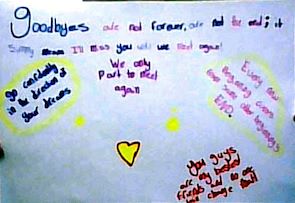 goodbyes are not forever, are not the end; it
Simply means I'll miss you until we meet again!
We only
Part to meet
again
go confidently
in the direction of
your dreams
Every new
Beginning comes
from some other beginning's
END.
You guys
are my bestest
friends and no one
can change that!